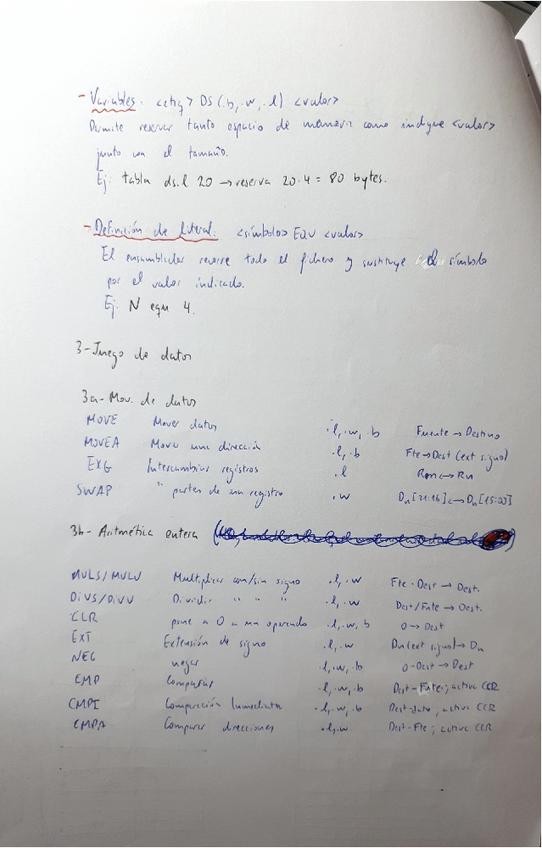 - Variables: <etiq> DS (.b, .w, .l) <valor>
Permite reservar tanto espacio de memoria como indique <valor>
junto con el tamaño.
Ej: tabla ds.l 20 → reserva 20·4 = 80 bytes.
- Definición de literal: <símbolo> EQU <valor>
El ensamblador recorre todo el fichero y sustituye el símbolo
por el valor indicado.
Ej: N equ 4.
3- Juego de datos
3a- Mov. de datos
MOVE Mover datos .l, .w, .b Fuente → Destino
MOVEA Mover una dirección .l, .b Fte → Dest (ext signo)
EXG Intercambiar registros .l Rm ↔ Rn
SWAP " partes de un registro .w Dn[31:16] ↔ Dn[15:00]
3b- Aritmética entera
MULS/MULU Multiplicar con/sin signo .l, .w Fte · Dest → Dest.
DIVS/DIVU Dividir " " " .l, .w Dest/Fnte → Dest.
CLR pone a 0 a un operando .l, .w, b 0 → Dest
EXT Extensión de signo .l, .w Dn(ext signo) → Dn
NEG negar .l, .w, .b 0-Dest → Dest
CMP Comparar .l, .w, .b Dest-Fnte; activa CCR
CMPI Comparación Inmediata .l, .w, .b Dest-dato; activa CCR
CMPA Comparar direcciones .l, .w Dest-Fte; activa CCR